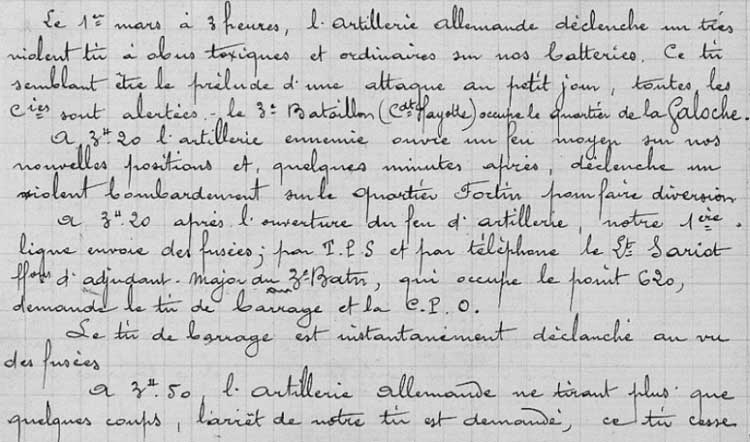 Le 1er mars à 3 heures, l'artillerie allemande déclenche un très
violent tir à obus toxiques et ordinaires sur nos batteries. Ce tir
semblant être le prélude d'une attaque au petit jour, toutes les
Cies sont alertées - le 3e Bataillon (Cdt Fayolle) occupe le quartier de la Galoche.
A 3H.20 l'artillerie ennemie ouvre un feu moyen sur nos
nouvelles positions et, quelques minutes après, déclenche un
violent bombardement sur le quartier Fortin pour faire diversion
A 3H.20 après l'ouverture du feu d'artillerie, notre 1ère
ligne envoie des fusées; par T.P.S et par téléphone le Lt Sariot
ffons d'adjudant-major au 3e Batn, qui occupe le point 620,
demande le tir de barrage et la C.P.O.
Le tir de barrage est instantanément déclanché au vu
des fusées
A 3H.50, l'artillerie allemande ne tirant plus que
quelques coups, l'arrêt de notre tir est demandé, ce tir cesse